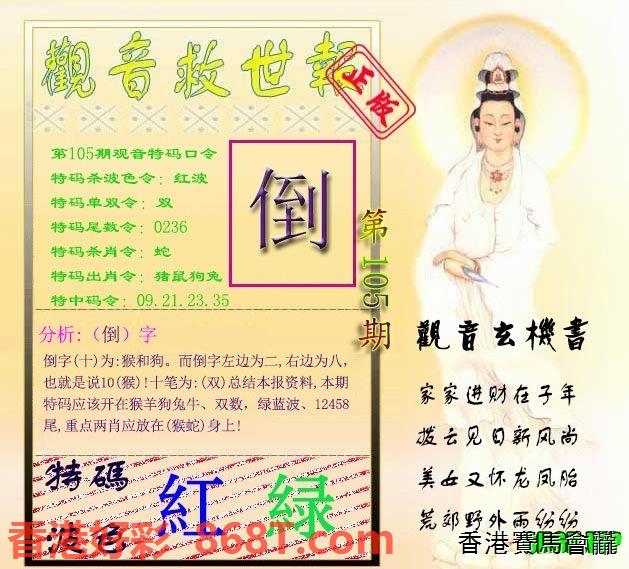 觀音救世報
正版
第105期观音特码口令
特码杀波色令：红波
特码单双令：双
特码尾数令：0236
特码杀肖令：蛇
特码出肖令：猪鼠狗兔
特中码令：09.21.23.35
倒
第105期
分析:（倒）字
倒字(十)为:猴和狗。而倒字左边为二,右边为八,
也就是说10(猴)!十笔为:(双)总结本报资料,本期
特码应该开在猴羊狗兔牛、双数，绿蓝波、12458
尾,重点两肖应放在(猴蛇)身上!
觀音玄機書
家家进财在子年
拨云见日新风尚
美女又怀龙凤胎
荒郊野外雨纷纷
特碼
波色
紅 绿
香港好彩 868T.com
香港賽馬會